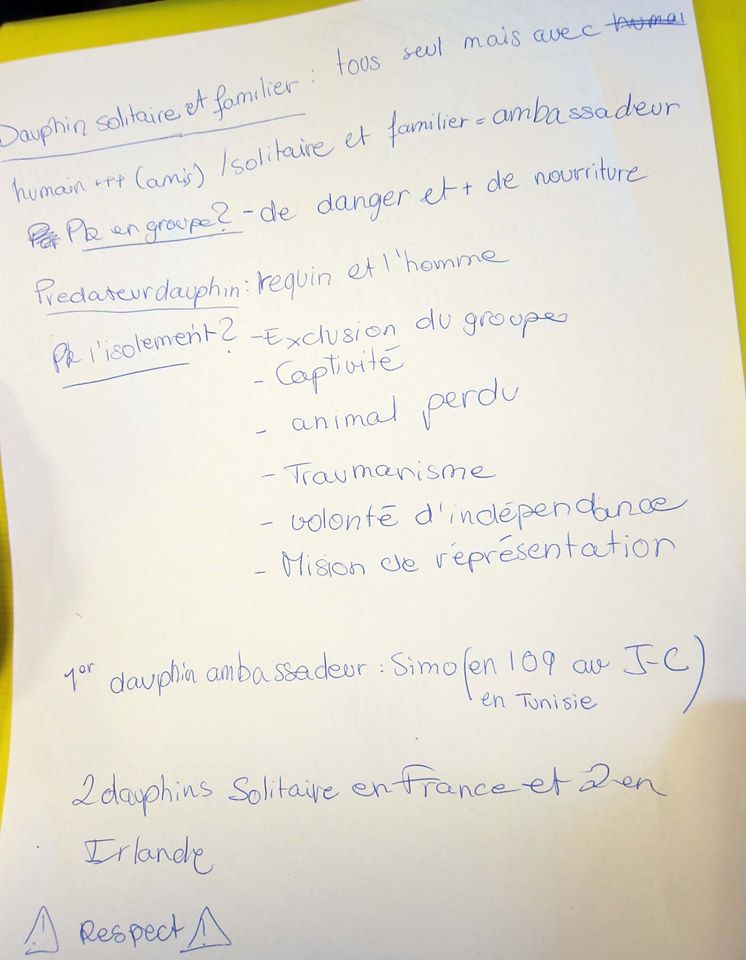 Dauphin solitaire et familier : toos seul mais avec humai
humain +++ (amis) / solitaire et familier = ambassadeur
Pk en groupe ? - de danger et + de nourriture
Predateur dauphin : requin et l'homme
Pk l'isolement ? - Exclusion du groupe
- Captivité
- animal perdu
- Traumanisme
- volonté d'indépendance
- Mision de réprésentation
1er dauphin ambassadeur : Simo (en 109 av J-C)
en Tunisie
2 dauphins Solitaire en France et 2 en
Irlande
⚠ Respect ⚠